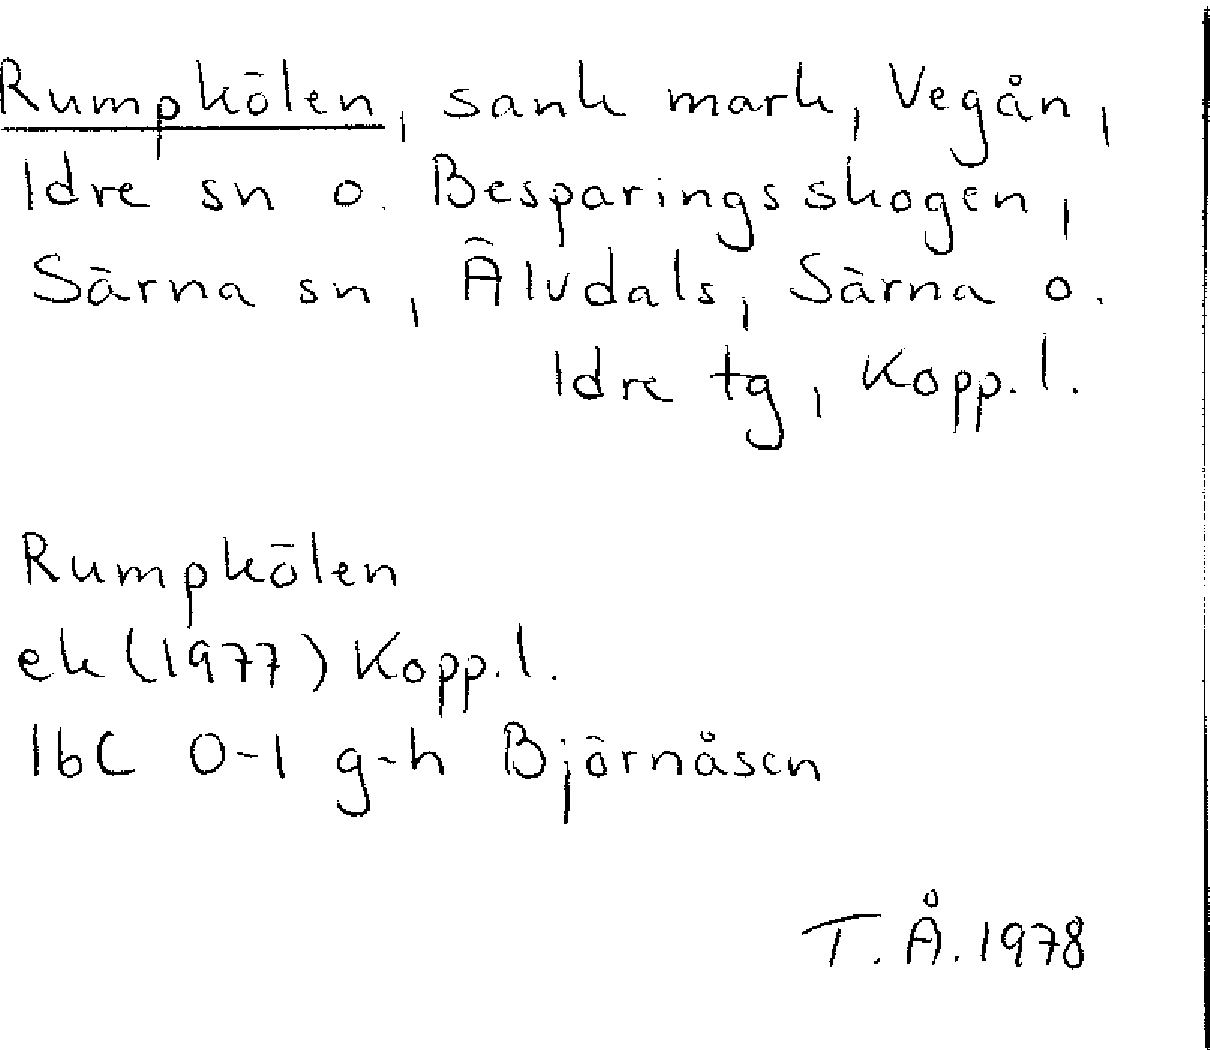 Rumpkölen, sank mark, Vegån,
Idre sn o. Besparingsskogen,
Särna sn, Älvdals, Särna o.
Idre tg, Kopp.l.
Rumpkölen
ek (1977) Kopp.l.
16C 0-1 g-h Björnåsen
T.Å. 1978